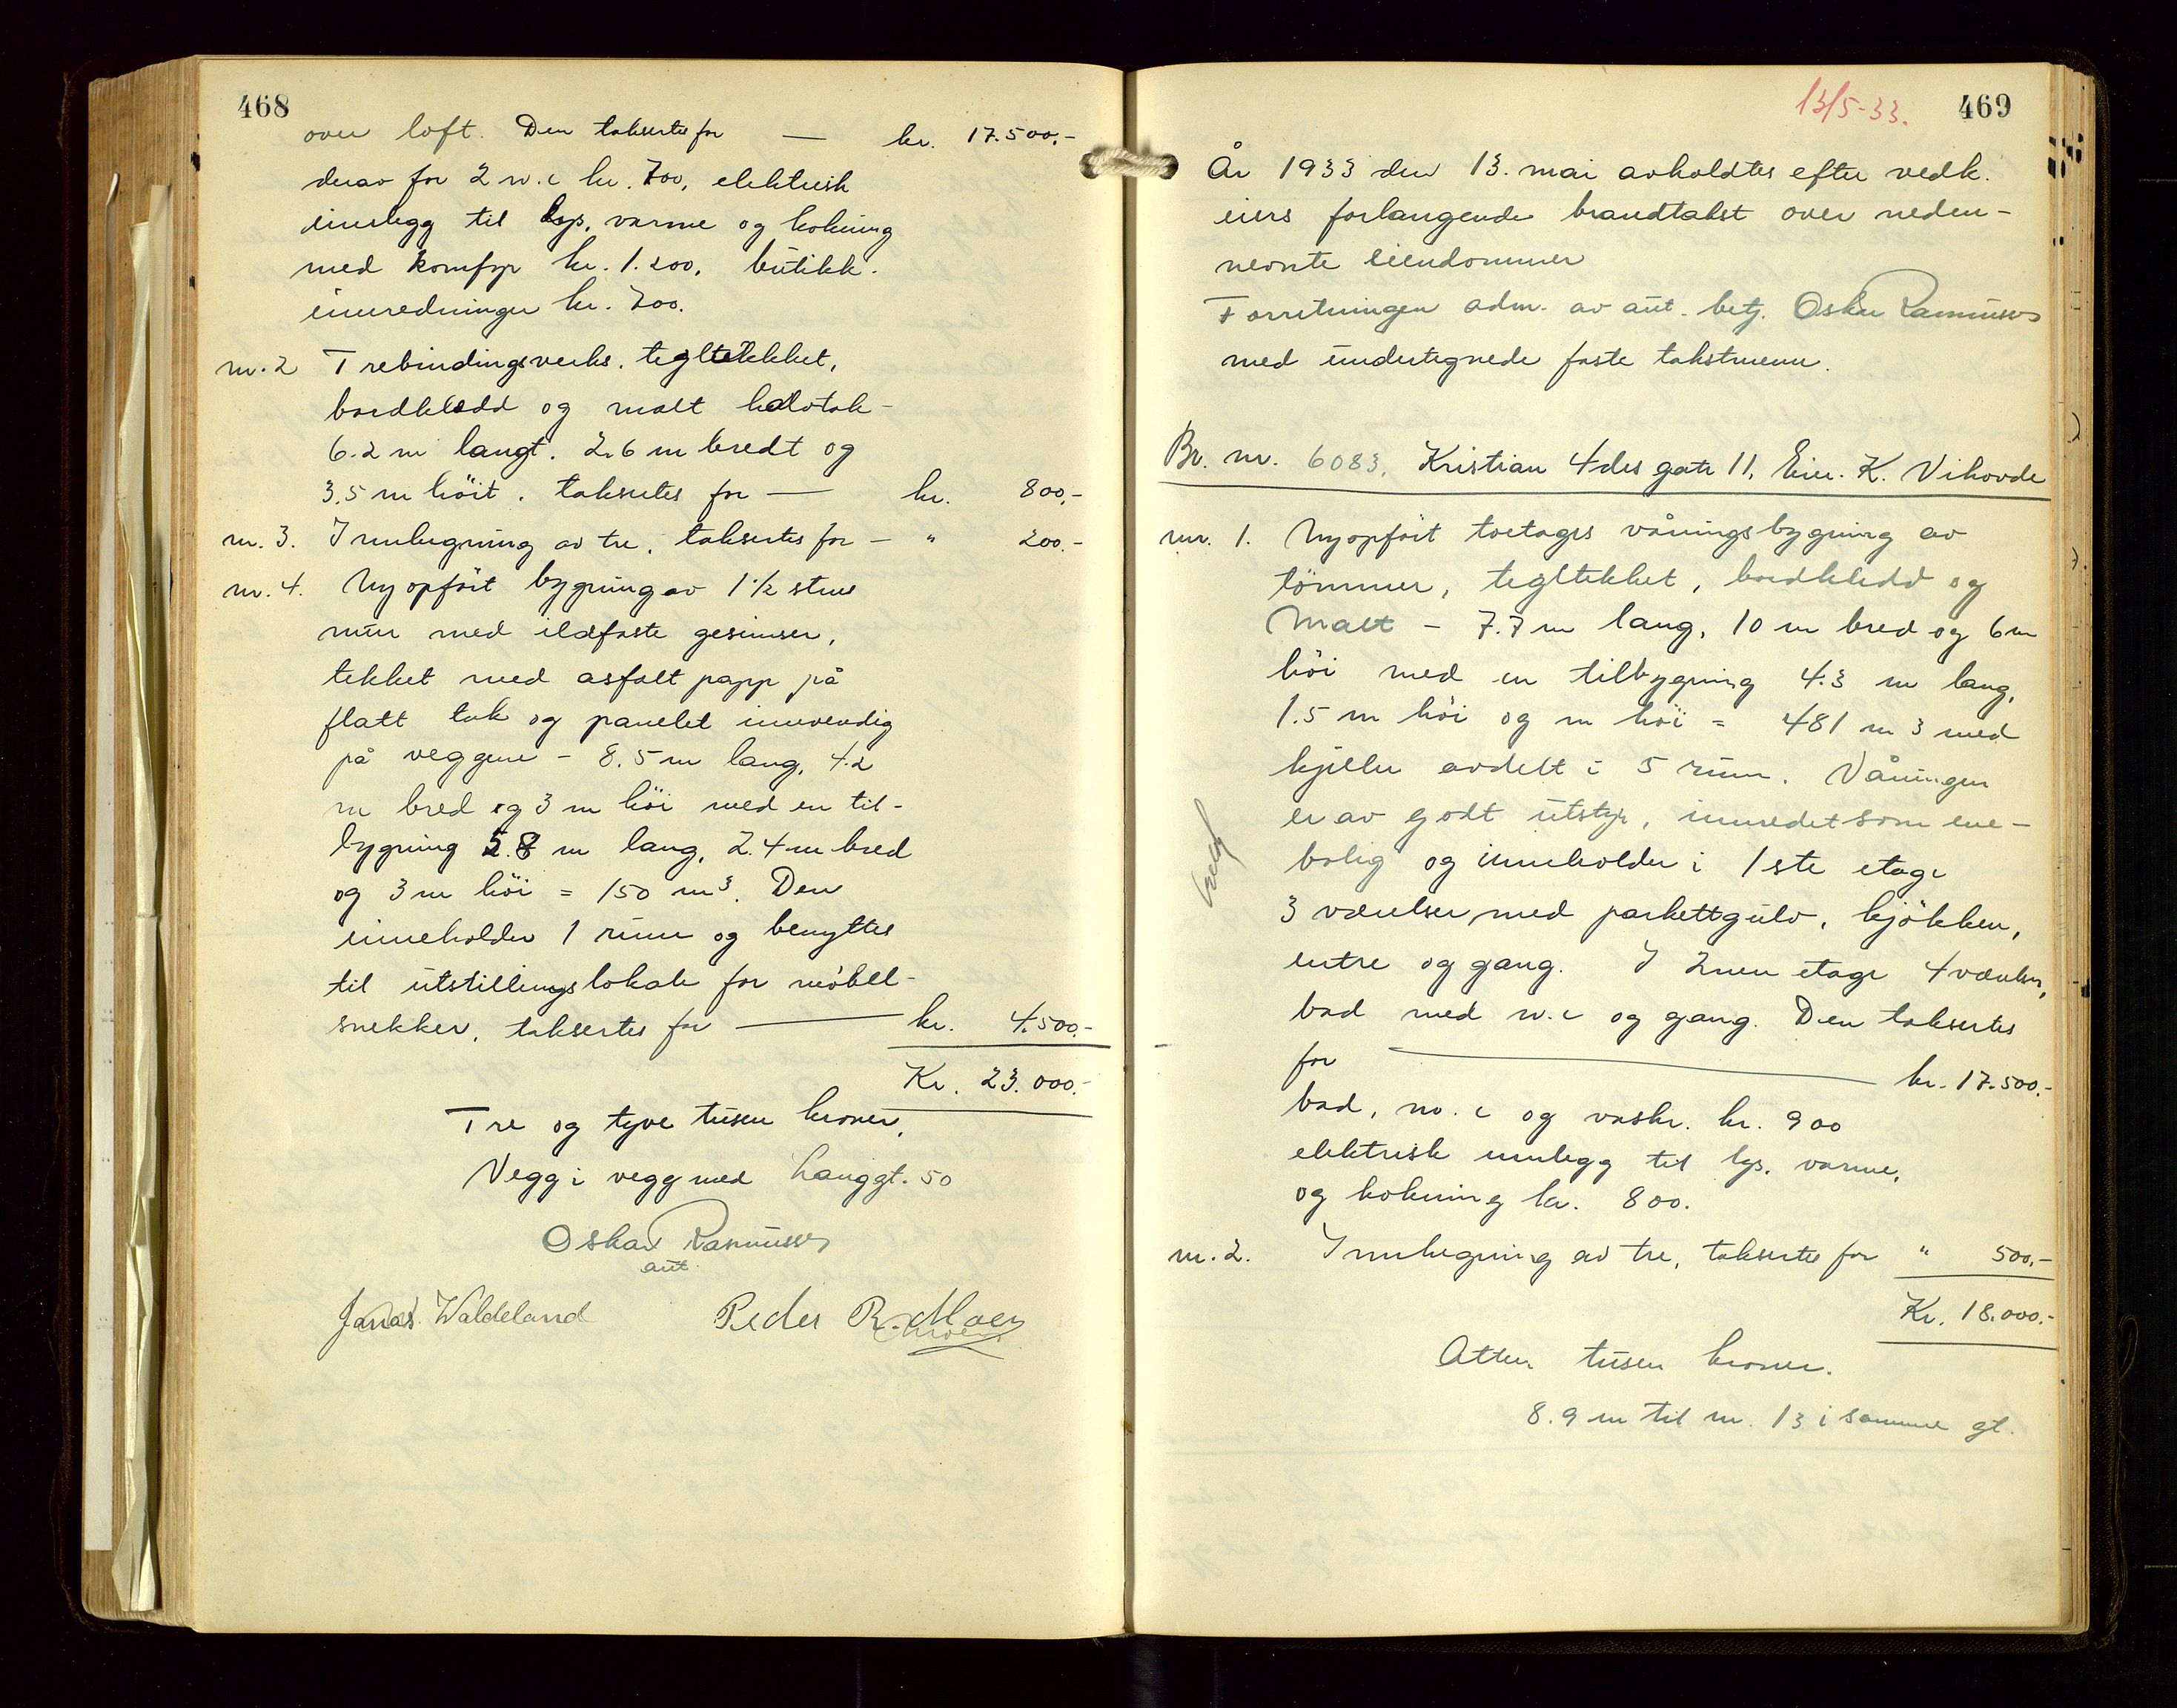 468
over loft. Den taksertes for — kr. 17.500.-
derav for 2 w.c kr. 700, elektrisk
innlegg til lys, varme og kokning
med komfyr kr. 1.200, butikk-
innredninger kr. 700.
nr. 2 Trebindingsverks, tegltekket,
bordklædd og malt halvtak-
6.2 m langt. 2.6 m bredt og
3.5 m höit. taksertes for — kr. 800.-
nr. 3. Innhegning av tre, taksertes for — " 200.-
nr. 4. Nyopfört bygning av 1 1/2 stens
mur med ildfaste gesimser,
tekket med asfalt papp på
flatt tak og panelet innvendig
på veggene - 8.5 m lang, 4.2
m bred og 3 m höi med en til-
bygning 5.8 m lang, 2.4 m bred
og 3 m höi = 150 m3. Den
inneholder 1 rum og benyttes
til utstillingslokale for möbel-
snekker, taksertes for — kr. 4.500.-
Kr. 23.000.-
Tre og tyve tusen kroner,
Vegg i vegg med Langgt. 50
Oskar Rasmussen
aut.
Jonas Waldeland Peder R. Moen
13/5-33. 469
År 1933 den 13. mai avholdtes efter vedk.
eiers forlangende brandtakst over neden-
nevnte eiendommer
Forretningen adm. av aut. betj. Oskar Rasmussen
med undertegnede faste takstmenn.
Br. nr. 6083. Kristian 4des gate 11, Eier. K. Vikovde
nr. 1. Nyopfört toetages våningsbygning av
tömmer, tegltekket, bordkledd og
Malt - 7.7 m lang, 10 m bred og 6 m
höi med en tilbygning 4.3 m lang,
1.5 m höi og m höi = 481 m3 med
kjeller avdelt i 5 rum. Våningen
er av godt utstyr, innredet som ene-
bolig og inneholder i 1ste etage
bred
3 værelser med parkettgulv, kjökken,
entre og gang. I 2nen etage 4 værelser,
bad med w.c og gang. Den taksertes
for — kr. 17.500.-
bad, w.c og vaskr. kr. 900
elektrisk innlegg til lys, varme,
og kokning kr. 800.
nr. 2. Innhegning av tre, taksertes for " 500.-
Kr. 18.000.-
Atten tusen kroner.
8.9 m til nr. 13 i samme gt.